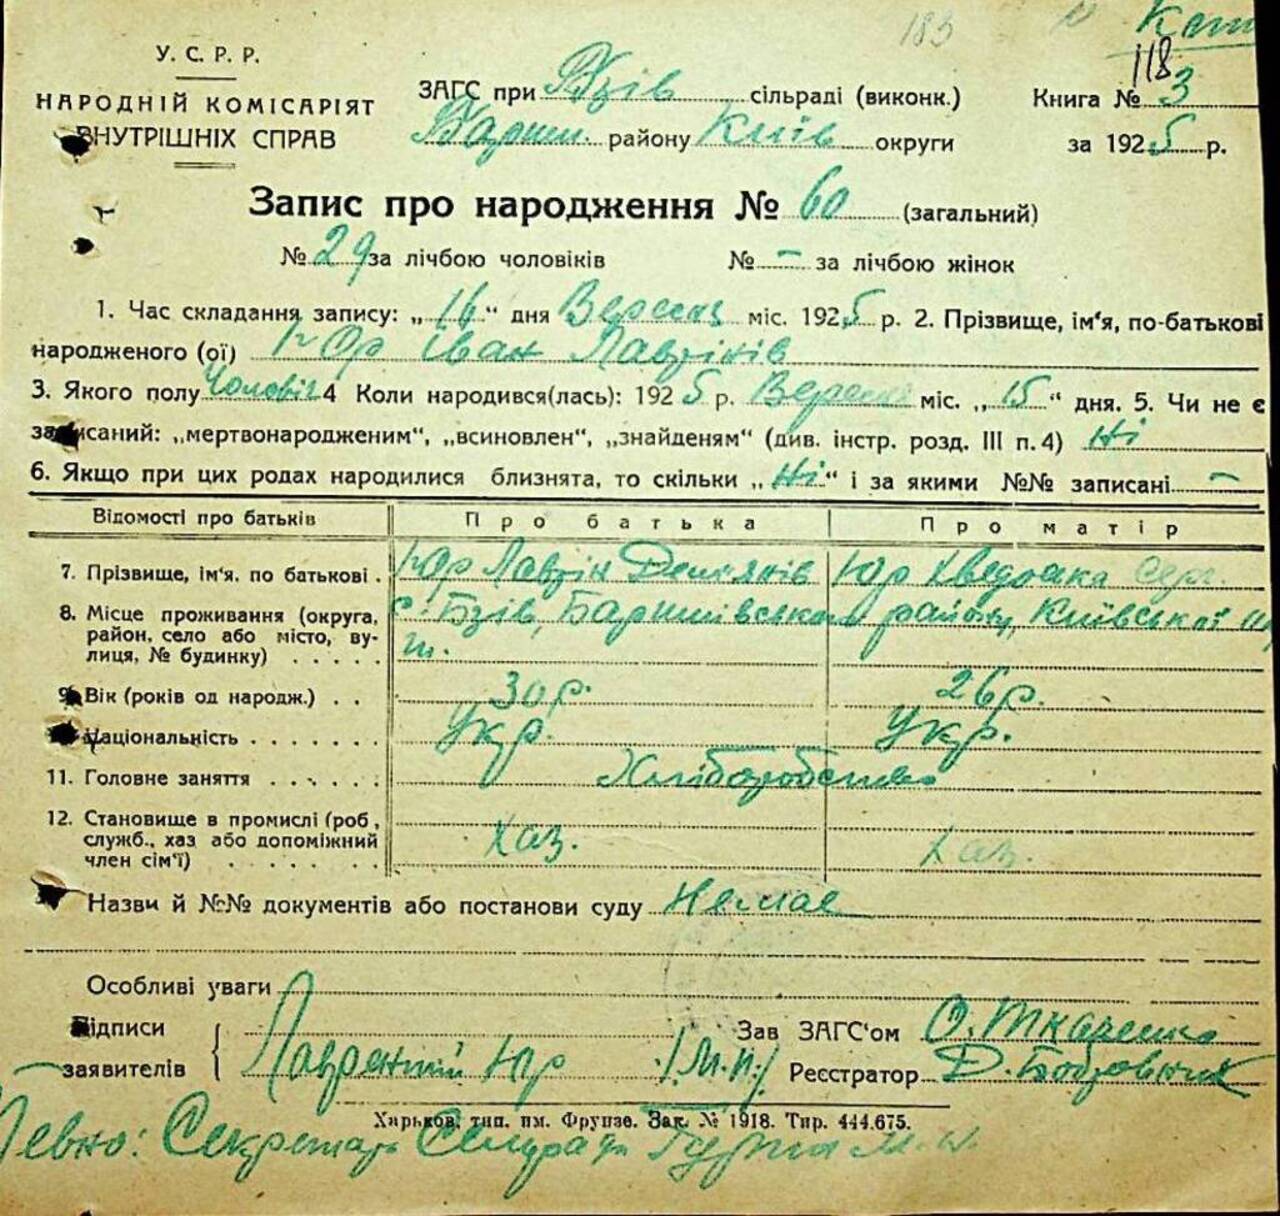 183
118
У. С. Р. Р.
НАРОДНІЙ КОМІСАРІЯТ
ВНУТРІШНІХ СПРАВ
ЗАГС при Бзів сільраді (виконк.)
Барыш. району Київ округи
Книга № 3
за 1925 р.
Запис про народження № 60 (загальний)
№ 29 за лічбою чоловіків № – за лічбою жінок
1. Час складання запису: „16“ дня Вересня міс. 1925 р. 2. Прізвище, ім'я, по-батькові
народженого (ої) Юр Іван Лаврінів
3. Якого полу Чоловіч 4 Коли народився(лась): 1925 р. Вересня міс. „15“ дня. 5. Чи не є
записаний: „мертвонародженим“, „всиновлен“, „знайденям“ (див. інстр. розд. III п. 4) Ні
6. Якщо при цих родах народилися близнята, то скільки „Ні“ і за якими №№ записані –
Відомості про батьків Про батька Про матір
7. Прізвище, ім'я. по батькові . Юр Лаврін Дем'янів Юр Хведоска Серг.
8. Місце проживання (округа, район, село або місто, вулиця, № будинку) . . . . . с. Бзів, Баришівського району, Київської
9. Вік (років од народж.) . . 30 р. 26 р.
Національність . . . . . . . Укр. Укр.
11. Головне заняття . . . . . Хліборобство
12. Становище в промислі (роб, служб., хаз або допоміжний член сім'ї) . . . . . . Хаз. Хаз.
Назви й №№ документів або постанови суду Немає
Особливі уваги
Підписи
заявителів Лаврентий Юр /М.П./
Зав ЗАГС'ом О. Ткаченко
Реєстратор Д. Бобровник
Харьков, тип. им. Фрунзе. Зак. № 1918. Тир. 444.675.
Певно: Секретарь Сельради